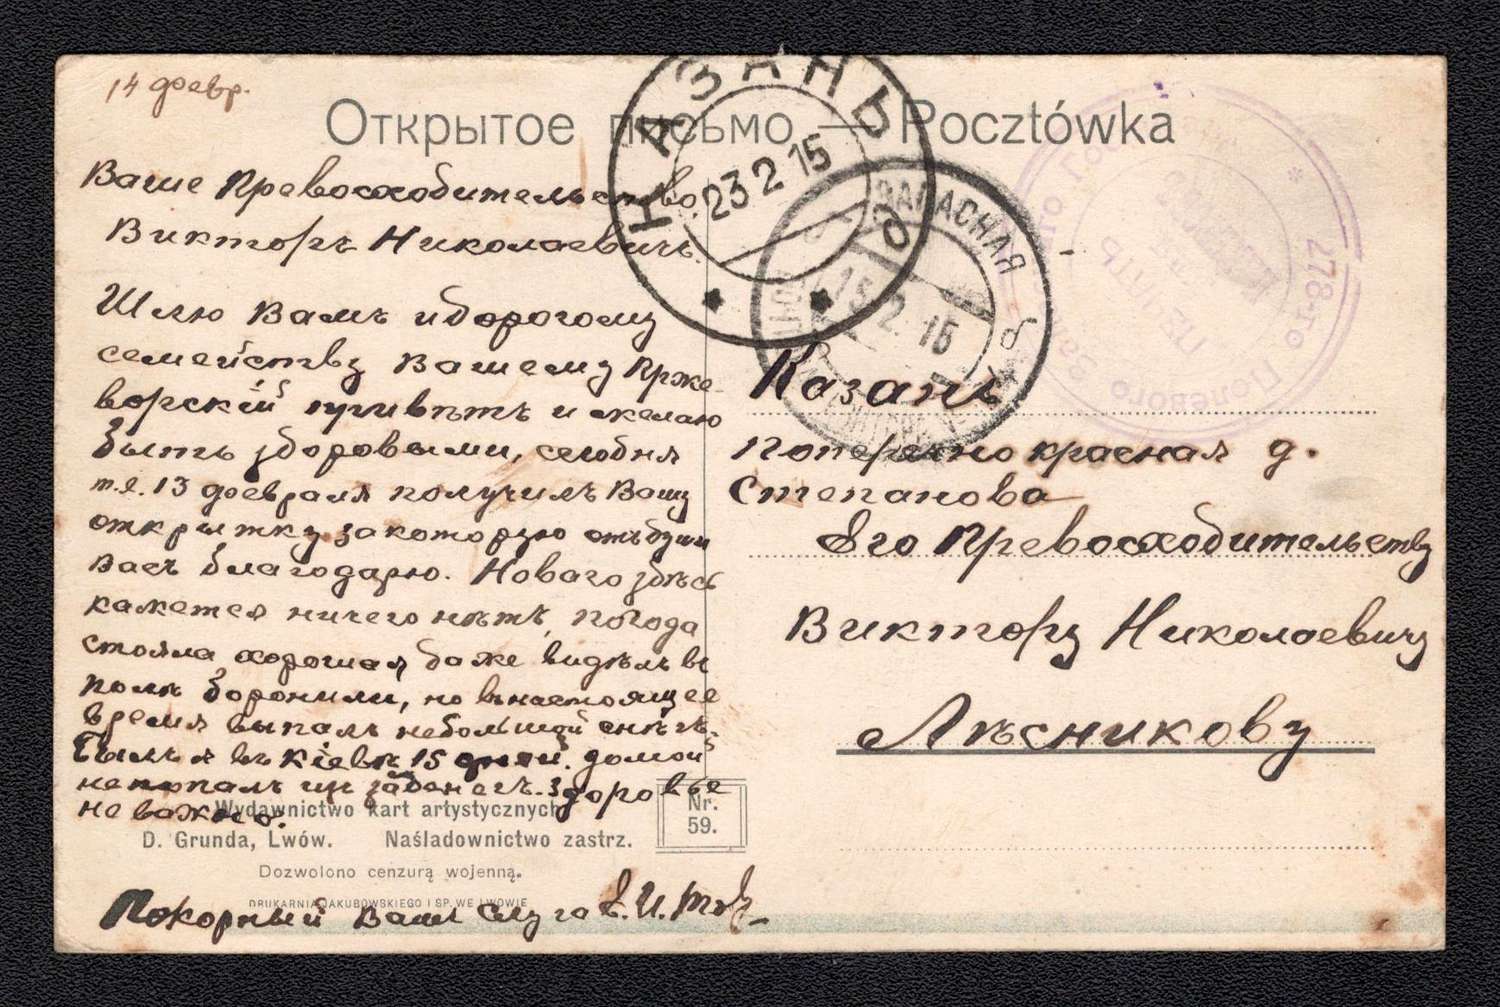 14 февр.
Открытое письмо — Pocztówka
Ваше Превосходительство
Викторъ Николаевичъ.
Шлю Вамъ и дорогому
семейству Вашему Прже-
ворскій привѣтъ и желаю
быть здоровыми, сегодня
т.е. 13 февраля получилъ Вашу
открытку за которую отъ души
Васъ благодарю. Новаго здѣсь
кажется ничего нѣтъ, погода
стояла хорошая, даже видѣлъ въ
полѣ боронили, но въ настоящее
время выпалъ небольшой снѣгъ.
Былъ я въ Кіевѣ 15 дней. домой
не попалъ
здоровье
не важно.
Покорный Вамъ слуга
Wydawnictwo kart artystycznych
D. Grunda, Lwów. Naśladownictwo zastrz.
Dozwolono cenzurą wojenną.
DRUKARNIA JAKUBOWSKIEGO I SP. WE LWOWIE
Nr.
59.
КАЗАНЬ
23 2 15
ЗАПАСНАЯ
15.2.15
278-го Полевого
ПЕЧАТЬ
Казань
Поперечно красная д.
Степанова
Его Превосходительству
Виктору Николаевичу
Лѣсникову